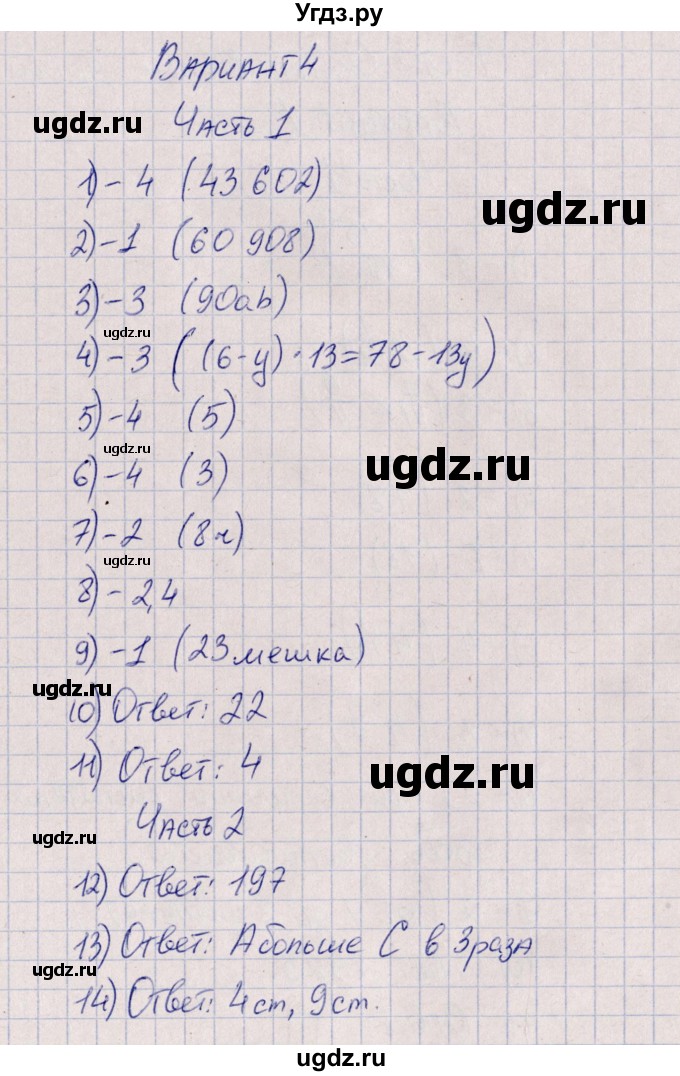 Угдз.ру
Вариант 4
ugdz.ru
Часть 1
1) - 4 (43 602)
ugdz.ru
2) - 1 (60 908)
3) - 3 (90ab)
ugdz.ru
4) - 3 ((6-y)·13=78-13y)
5) - 4 (5)
ugdz.ru
6) - 4 (3)
ugdz.ru
7) - 2 (8ч)
ugdz.ru
8) - 2,4
9) - 1 (23 мешка)
ugdz.ru
10) Ответ: 22
11) Ответ: 4
ugdz.ru
Часть 2
ugdz.ru
12) Ответ: 197
13) Ответ: А больше С в 3 раза
ugdz.ru
14) Ответ: 4 ст, 9 ст.
ugdz.ru